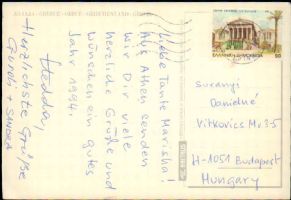 Liebe Tante Marisha!
Aus Athen senden
wir Dir viele
herzliche Grüße und
wünschen ein gutes
Jahr 1994.
Herzlichste Grüße
HELLAS · GREECE · GRECE · GRIECHENLAND · GRECIA
ΕΛΛΗΝΙΚΗ ΔΗΜΟΚΡΑΤΙΑ
90
Suranyi
Danielné
Vitkovics M u 3-5
H-1051 Budapest
Hungary